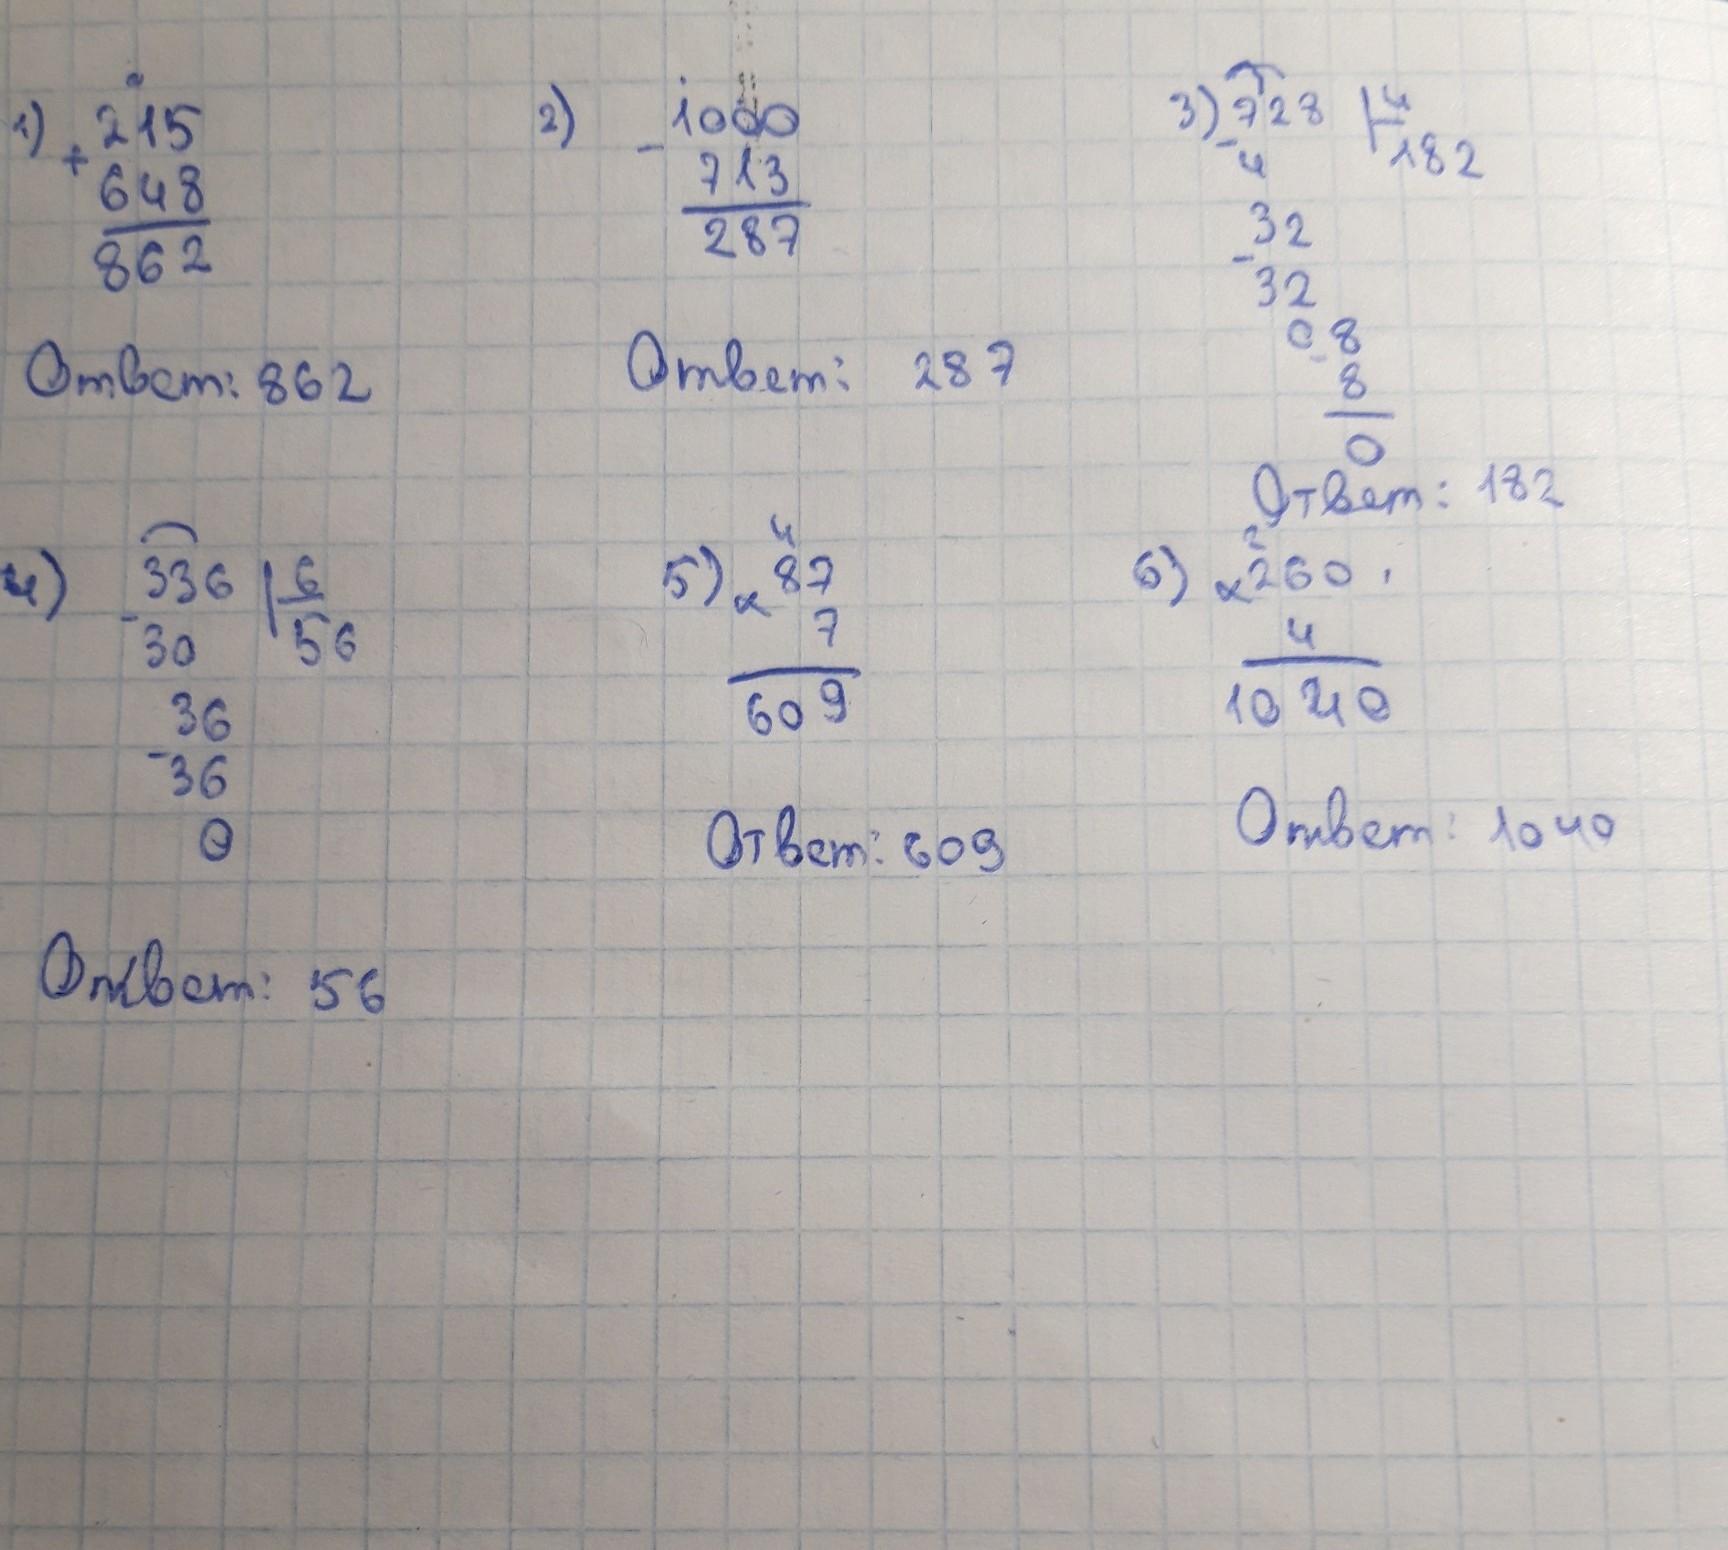 1) + 215
648
862
Ответ: 862
2) - 1000
713
287
Ответ: 287
3) 728 | 4
- 4 182
32
- 32
08
- 8
0
Ответ: 182
4) 336 | 6
- 30 56
36
- 36
0
Ответ: 56
4
5) x 87
7
609
Ответ: 609
2
6) x 260
4
1040
Ответ: 1040